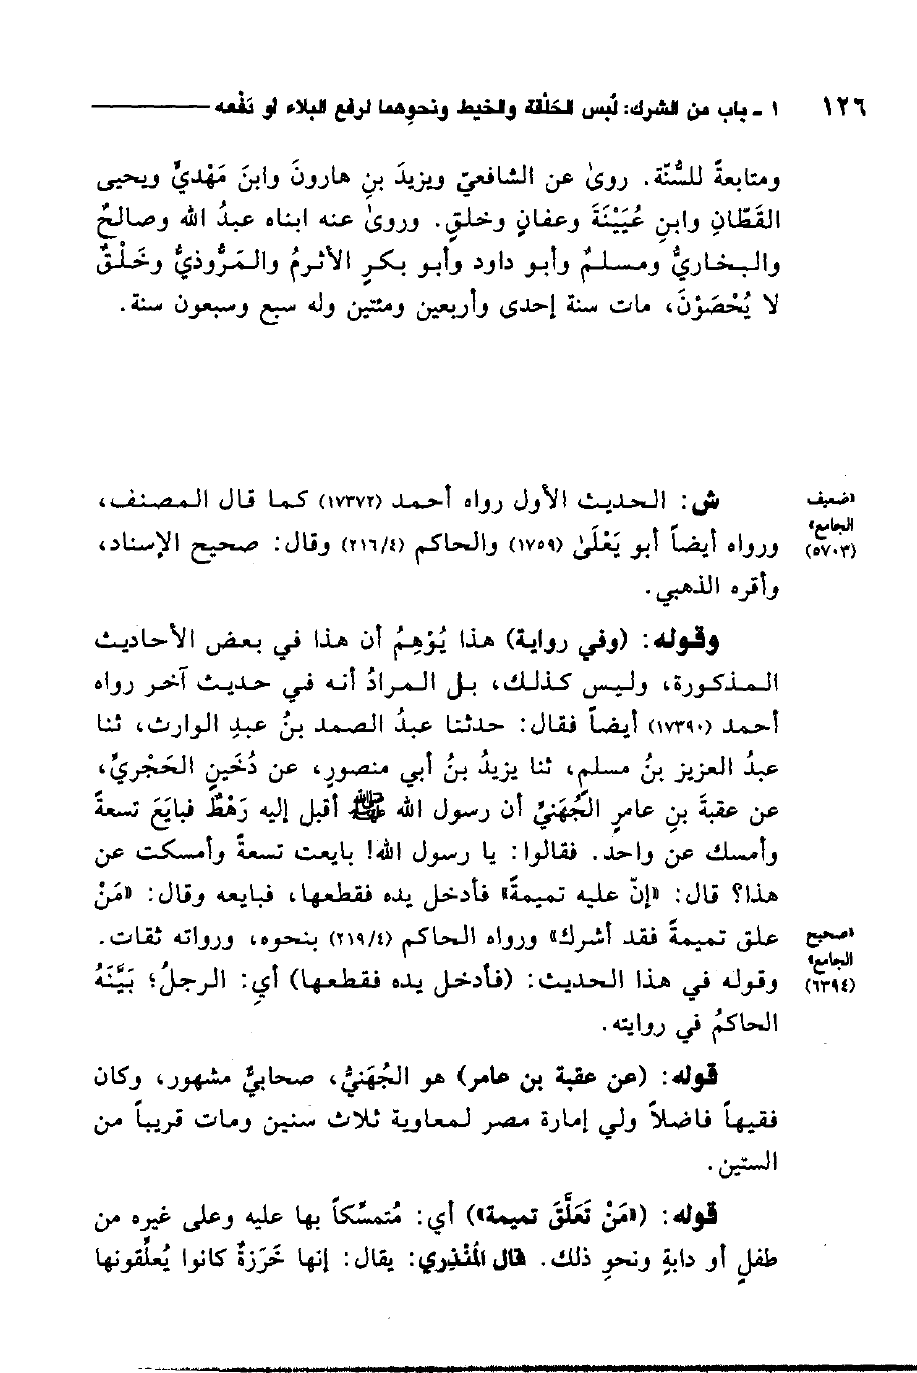 ١٢٦ ١ - باب من الشرك: لُبس الحَلْقة والخيط ونحوِهما لرفع البلاء أو دَفْعه
ومتابعةً للسُّنّة. روىٰ عن الشافعيّ ويزيدَ بنِ هارونَ وابنَ مَهْديٍّ ويحيى
القَطّانِ وابنِ عُيَيْنَةَ وعفانٍ وخلقٍ. وروىٰ عنه ابناه عبدُ الله وصالحٌ
والبخاريُّ ومسلمٌ وأبو داود وأبو بكرٍ الأثرمُ والمَرُّوذيُّ وخَلْقٌ
لا يُحْصَوْنَ، مات سنة إحدى وأربعين ومئتين وله سبع وسبعون سنة.
ش: الحديث الأول رواه أحمد (١٧٣٧٢) كما قال المصنف،
«ضعيف
الجامع»
(٥٧٠٣)
ورواه أيضاً أبو يَعْلَىٰ (١٧٥٩) والحاكم (٢١٦/٤) وقال: صحيح الإسناد،
وأقره الذهبي.
وقوله: (وفي رواية) هذا يُوْهِمُ أن هذا في بعض الأحاديث
المذكورة، وليس كذلك، بل المرادُ أنه في حديث آخر رواه
أحمد (١٧٣٩٠) أيضاً فقال: حدثنا عبدُ الصمد بنُ عبدِ الوارث، ثنا
عبدُ العزيز بنُ مسلمٍ، ثنا يزيدُ بنُ أبي منصورٍ، عن دُخَينٍ الحَجْريِّ،
عن عقبةَ بنِ عامرٍ الجُهَنيِّ أن رسول الله ﷺ أقبل إليه رَهْطٌ فبايَعَ تسعةً
وأمسك عن واحد. فقالوا: يا رسول الله! بايعت تسعةً وأمسكت عن
هذا؟ قال: «إنّ عليه تميمةً» فأدخل يده فقطعها، فبايعه وقال: «مَنْ
علق تميمةً فقد أشرك» ورواه الحاكم (٢١٩/٤) بنحوه، ورواته ثقات.
«صحيح
الجامع»
(٦٣٩٤)
وقوله في هذا الحديث: (فأدخل يده فقطعها) أي: الرجلُ؛ بَيَّنَهُ
الحاكمُ في روايته.
قوله: (عن عقبة بن عامر) هو الجُهَنيُّ، صحابيٌّ مشهور، وكان
فقيهاً فاضلاً ولي إمارة مصر لمعاوية ثلاث سنين ومات قريباً من
الستين.
قوله: («مَنْ تَعَلَّقَ تميمة») أي: مُتمسِّكاً بها عليه وعلى غيره من
طفلٍ أو دابةٍ ونحوِ ذلك. قال المُنْذِري: يقال: إنها خَرَزةٌ كانوا يُعلِّقونها